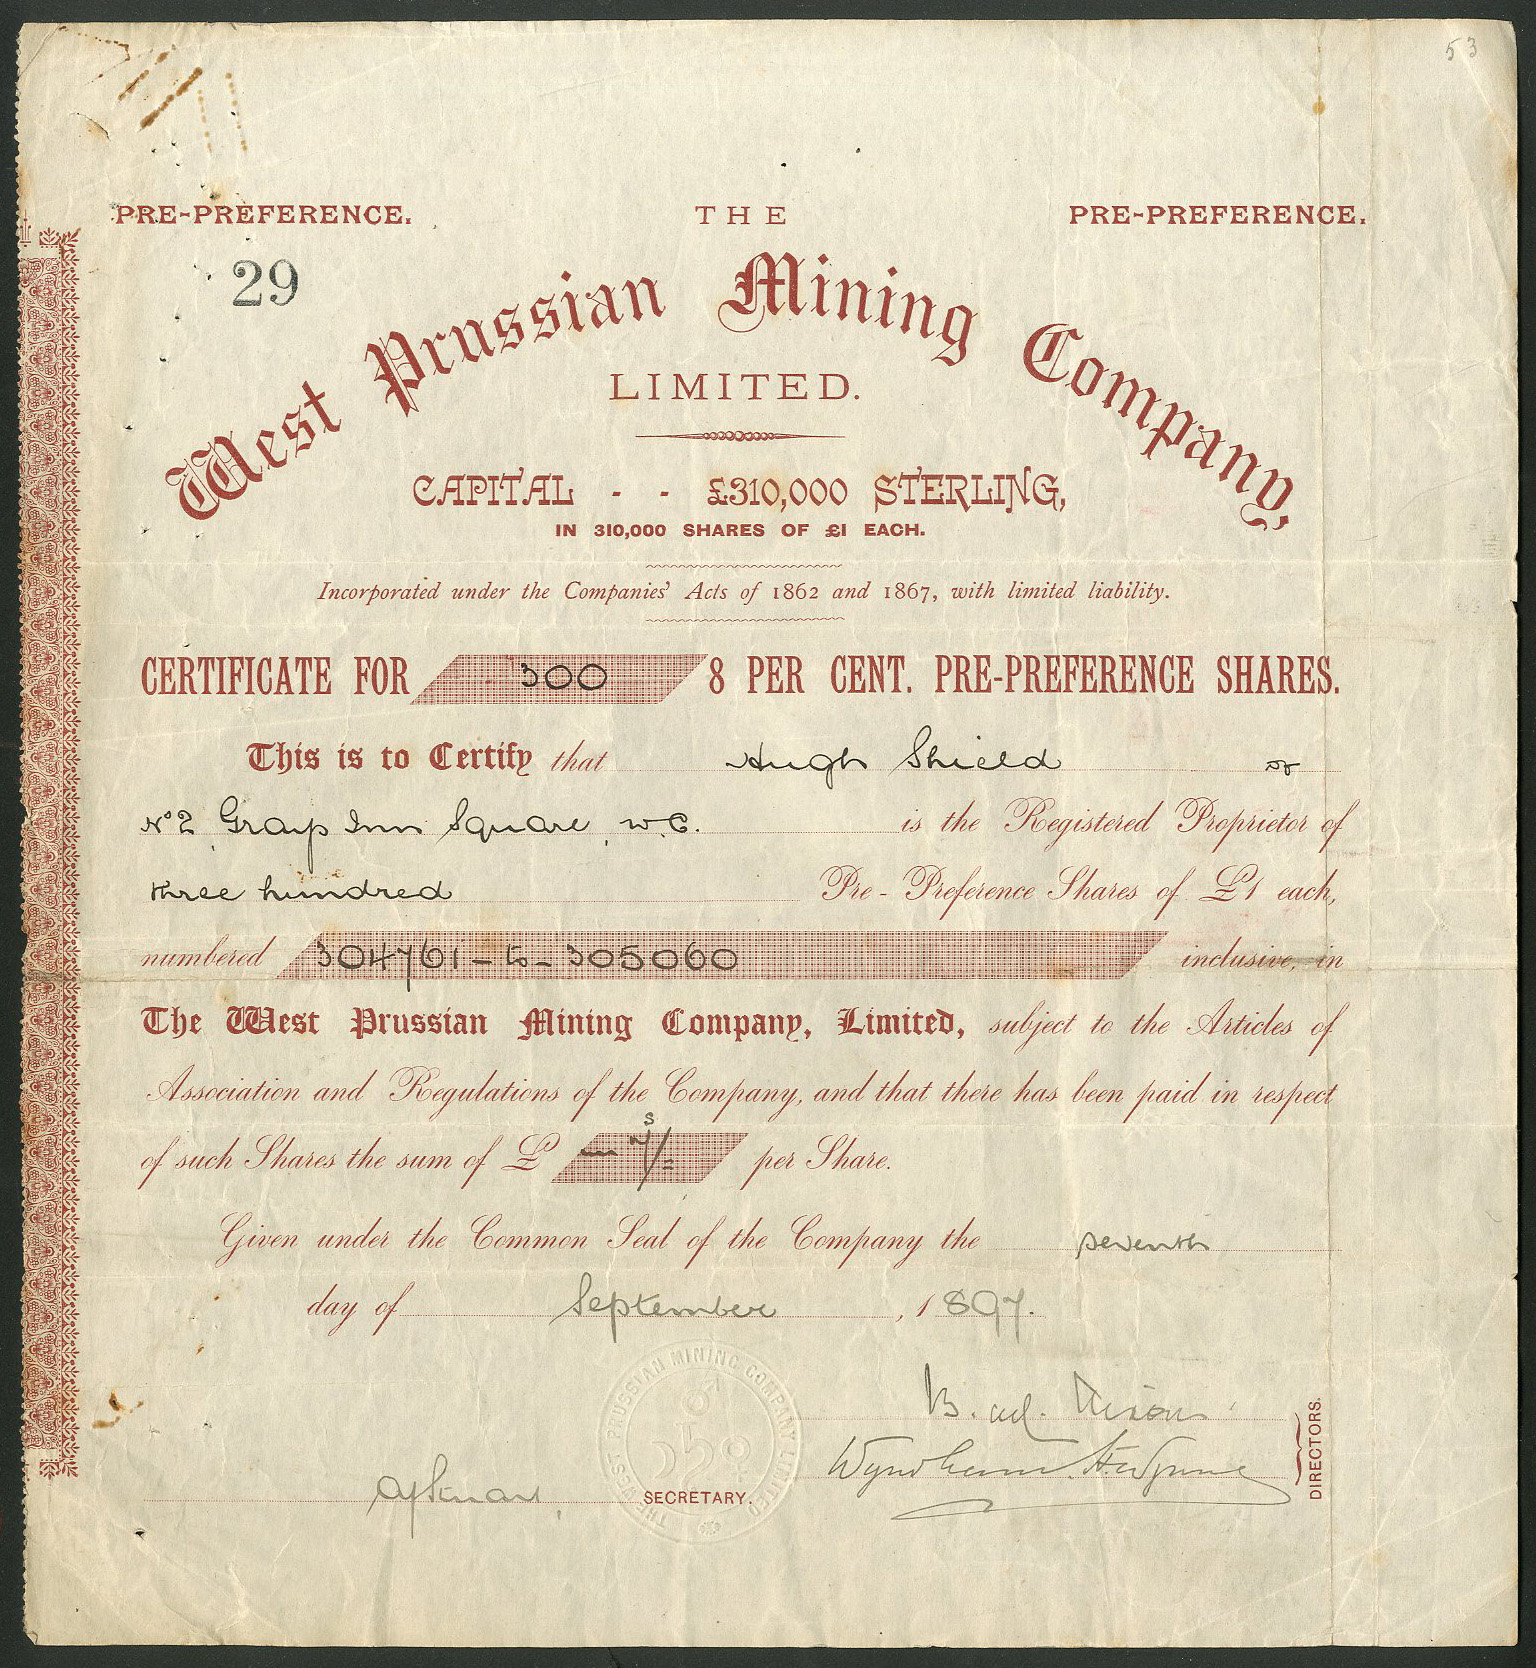 53
PRE-PREFERENCE. THE PRE-PREFERENCE.
29
West Prussian Mining Company,
LIMITED.
CAPITAL - - £310,000 STERLING,
IN 310,000 SHARES OF £1 EACH.
Incorporated under the Companies' Acts of 1862 and 1867, with limited liability.
CERTIFICATE FOR 300 8 PER CENT. PRE-PREFERENCE SHARES.
This is to Certify that Hugh Shield of
No 2 Grays Inn Square, W.C. is the Registered Proprietor of
three hundred Pre-Preference Shares of £1 each,
numbered 304761 - to - 305060 inclusive, in
The West Prussian Mining Company, Limited, subject to the Articles of
Association and Regulations of the Company, and that there has been paid in respect
of such Shares the sum of £ — 7s/= per Share.
Given under the Common Seal of the Company the seventh
day of September, 1897.
THE WEST PRUSSIAN MINING COMPANY LIMITED
SECRETARY.
DIRECTORS.